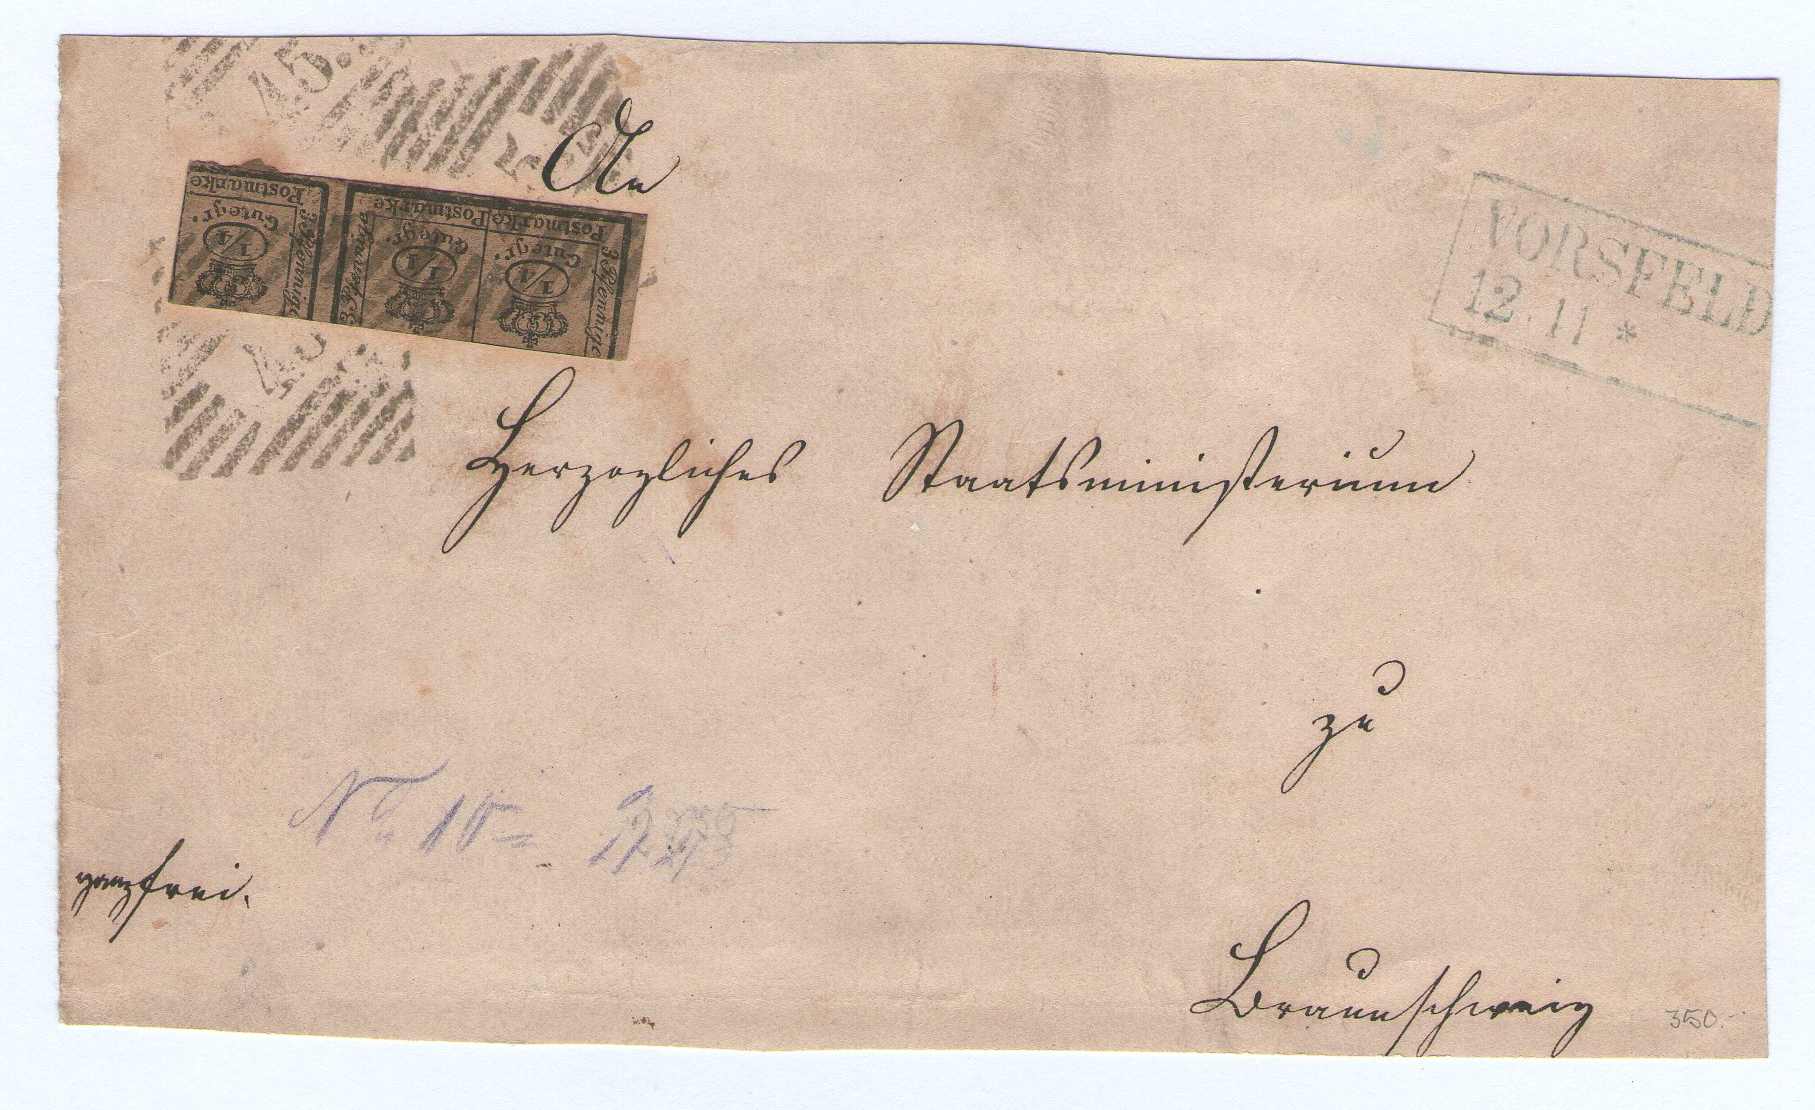 45.
45
Postmarke
Gutegr.
1/4
3 Pfennige
Postmarke
Gutegr.
1/4
3 Pfennige
Postmarke
Gutegr.
1/4
3 Pfennige
An
VORSFELD
12. 11 *
Herzogliches Staatsministerium
zu
No. 10
ganz frei.
Braunschweig
350.-